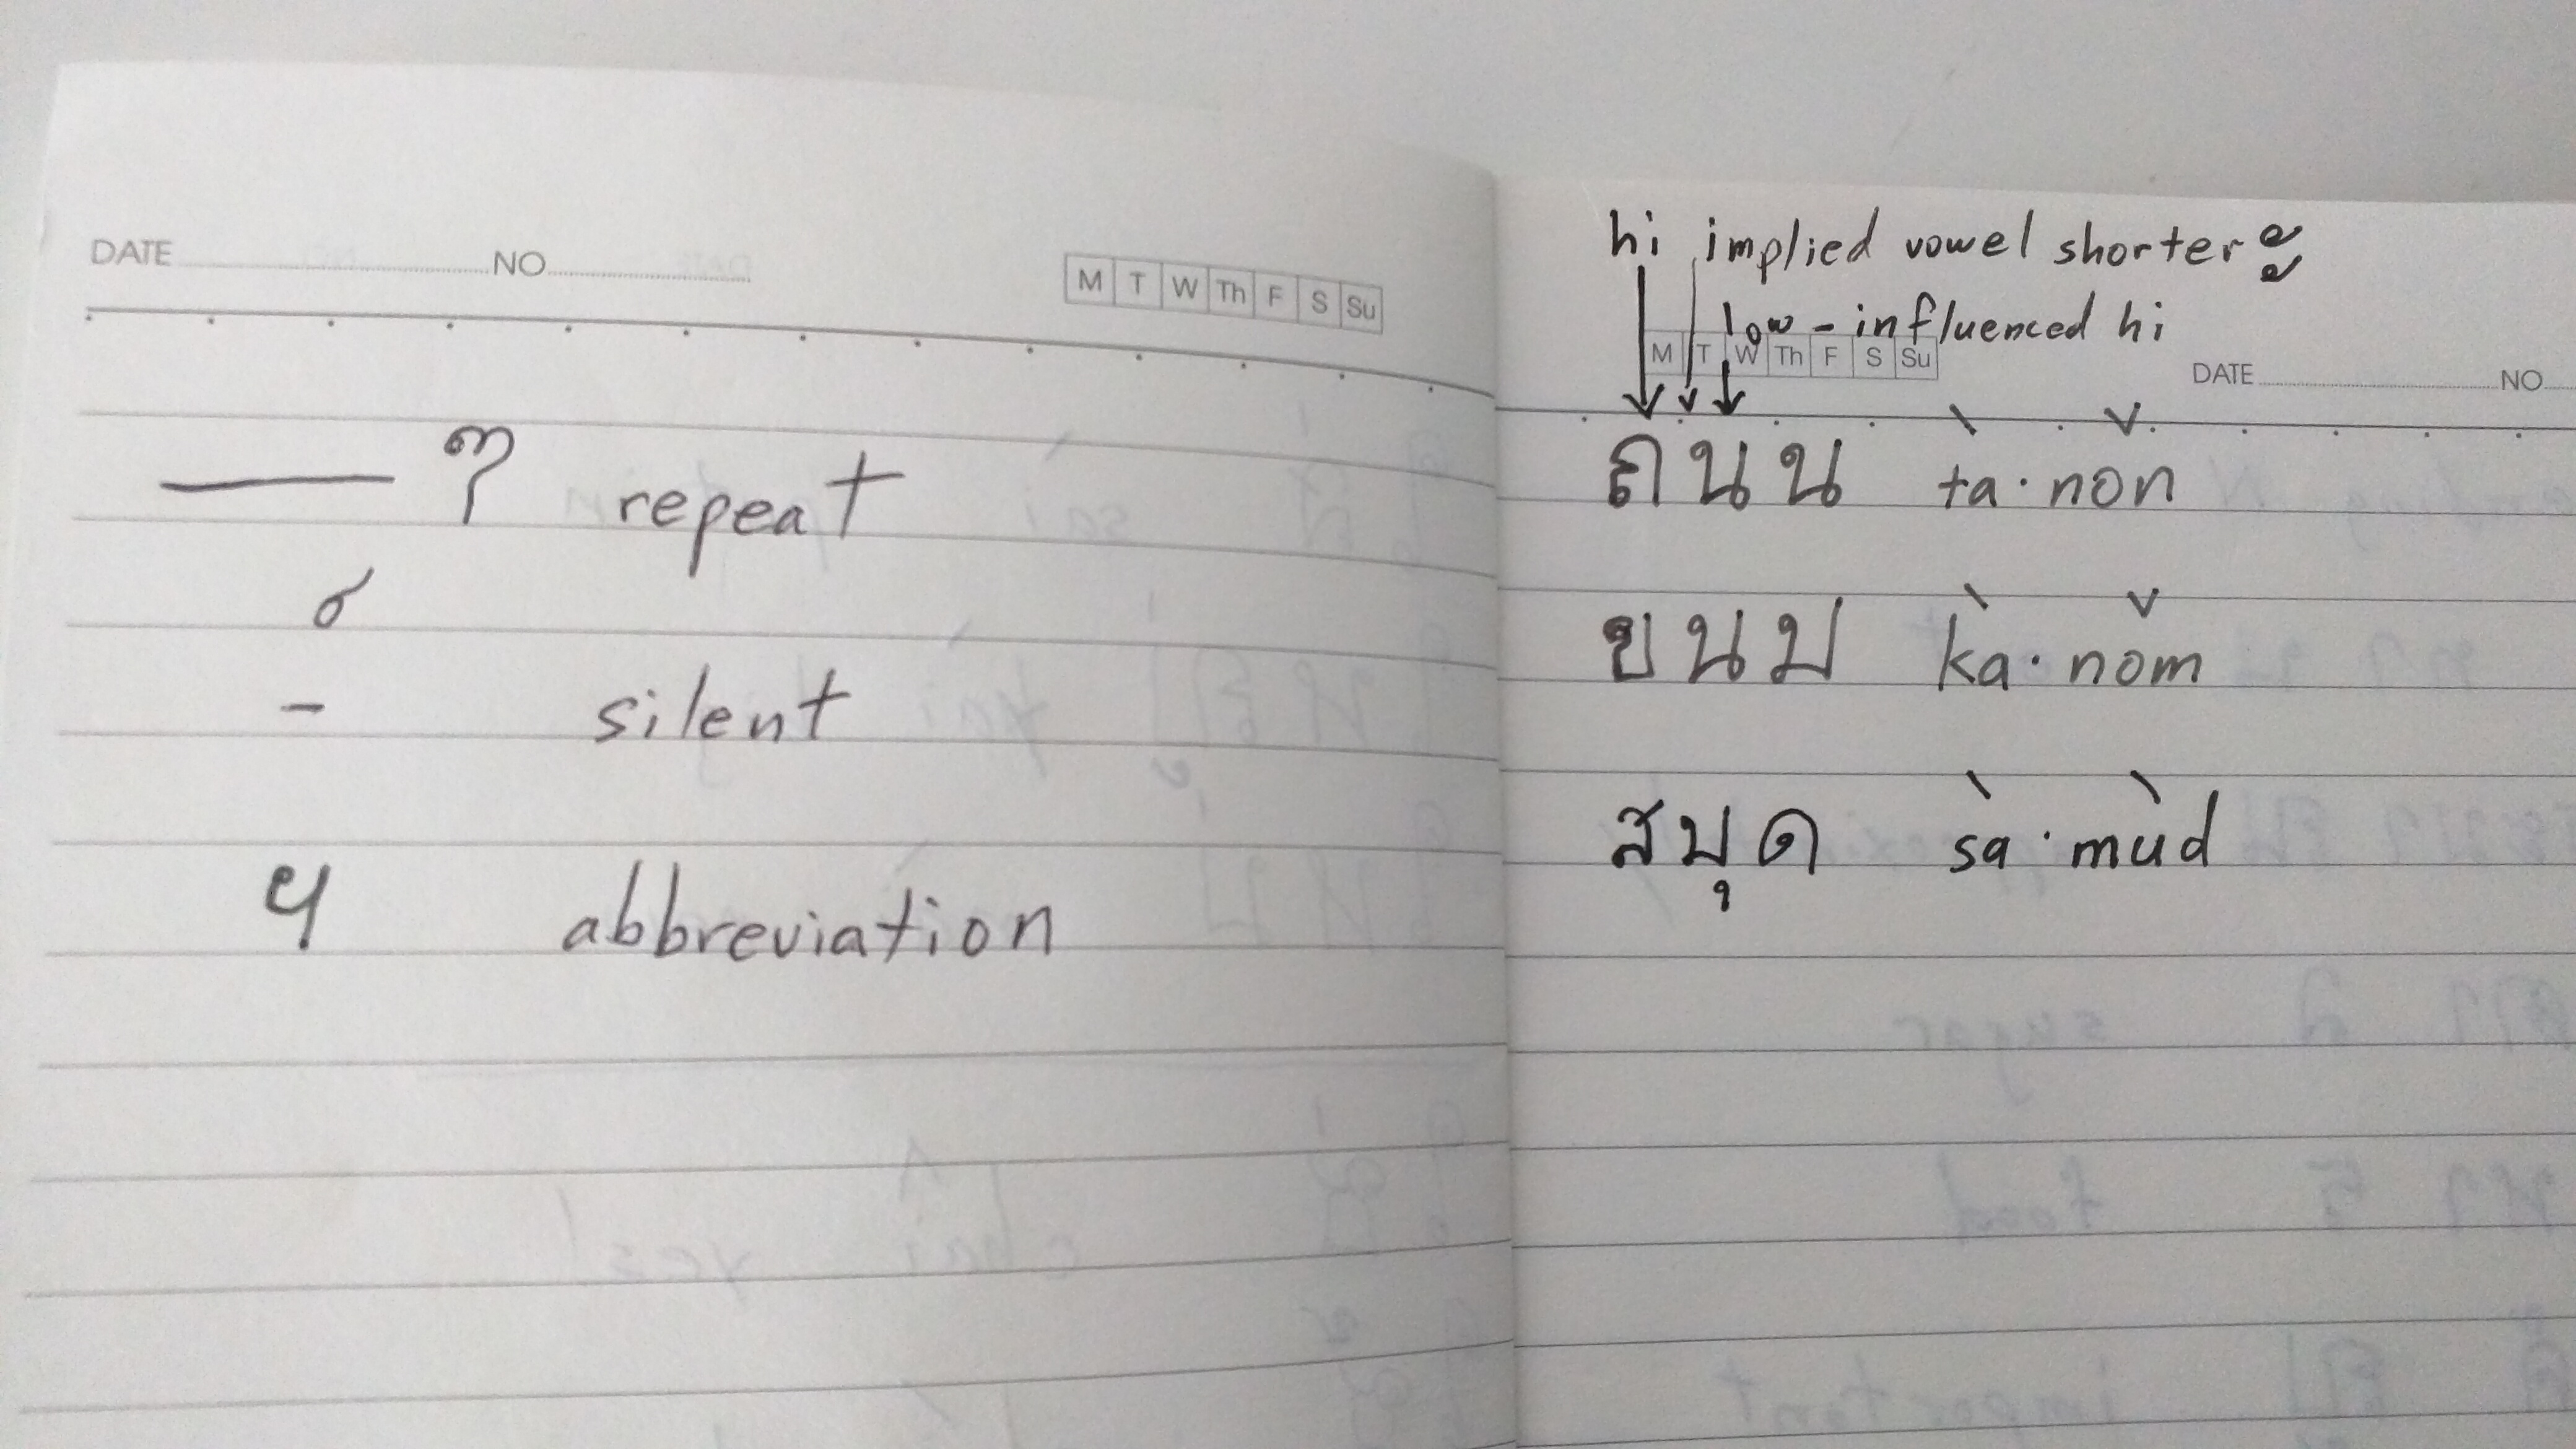 DATE NO M T W Th F S Su
ๆ repeat
์
- silent
ฯ abbreviation
hi implied vowel shorter ะ
low - influenced hi
M T W Th F S Su DATE NO
ถนน tà·nǒn
ขนม kà·nǒm
สมุด sà·mùd